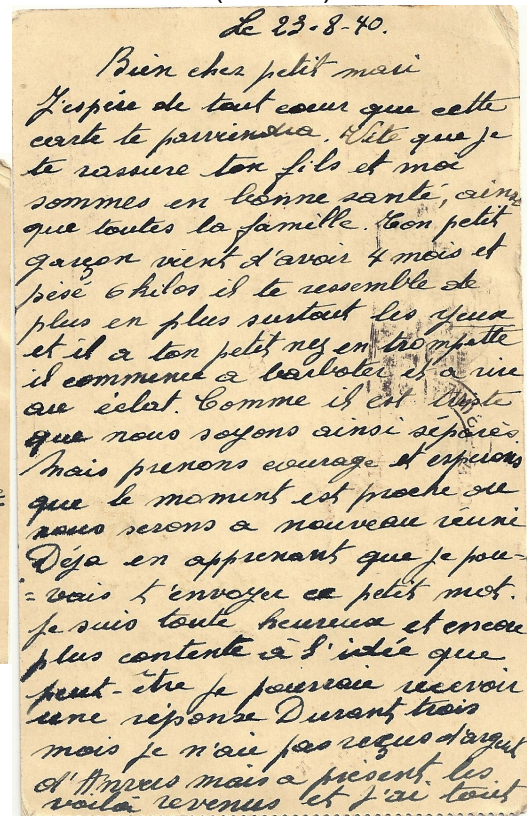 Le 23-8-40.
Bien cher petit mari
J'espère de tout cœur que cette
carte te parviendra. Vite que je
te rassure ton fils et moi
sommes en bonne santé, ainsi
que toutes la famille. Ton petit
garçon vient d'avoir 4 mois et
pesé 6 kilos il te ressemble de
plus en plus surtout les yeux
et il a ton petit nez en trompette
il commence a barboter et a rire
au éclat. Comme il est triste
que nous soyons ainsi séparés
Mais prenons courage et espérons
que le moment est proche ou
nous serons a nouveau réuni
Déja en apprenant que je pou-
=vais t'envoyer ce petit mot.
je suis toute heureux et encore
plus contente à l'idée que
peut-être je pourrais recevoir
une réponse Durant trois
mois je n'aie pas reçus d'argent
d'Anvers mais a présent les
voilà revenus et j'ai tout